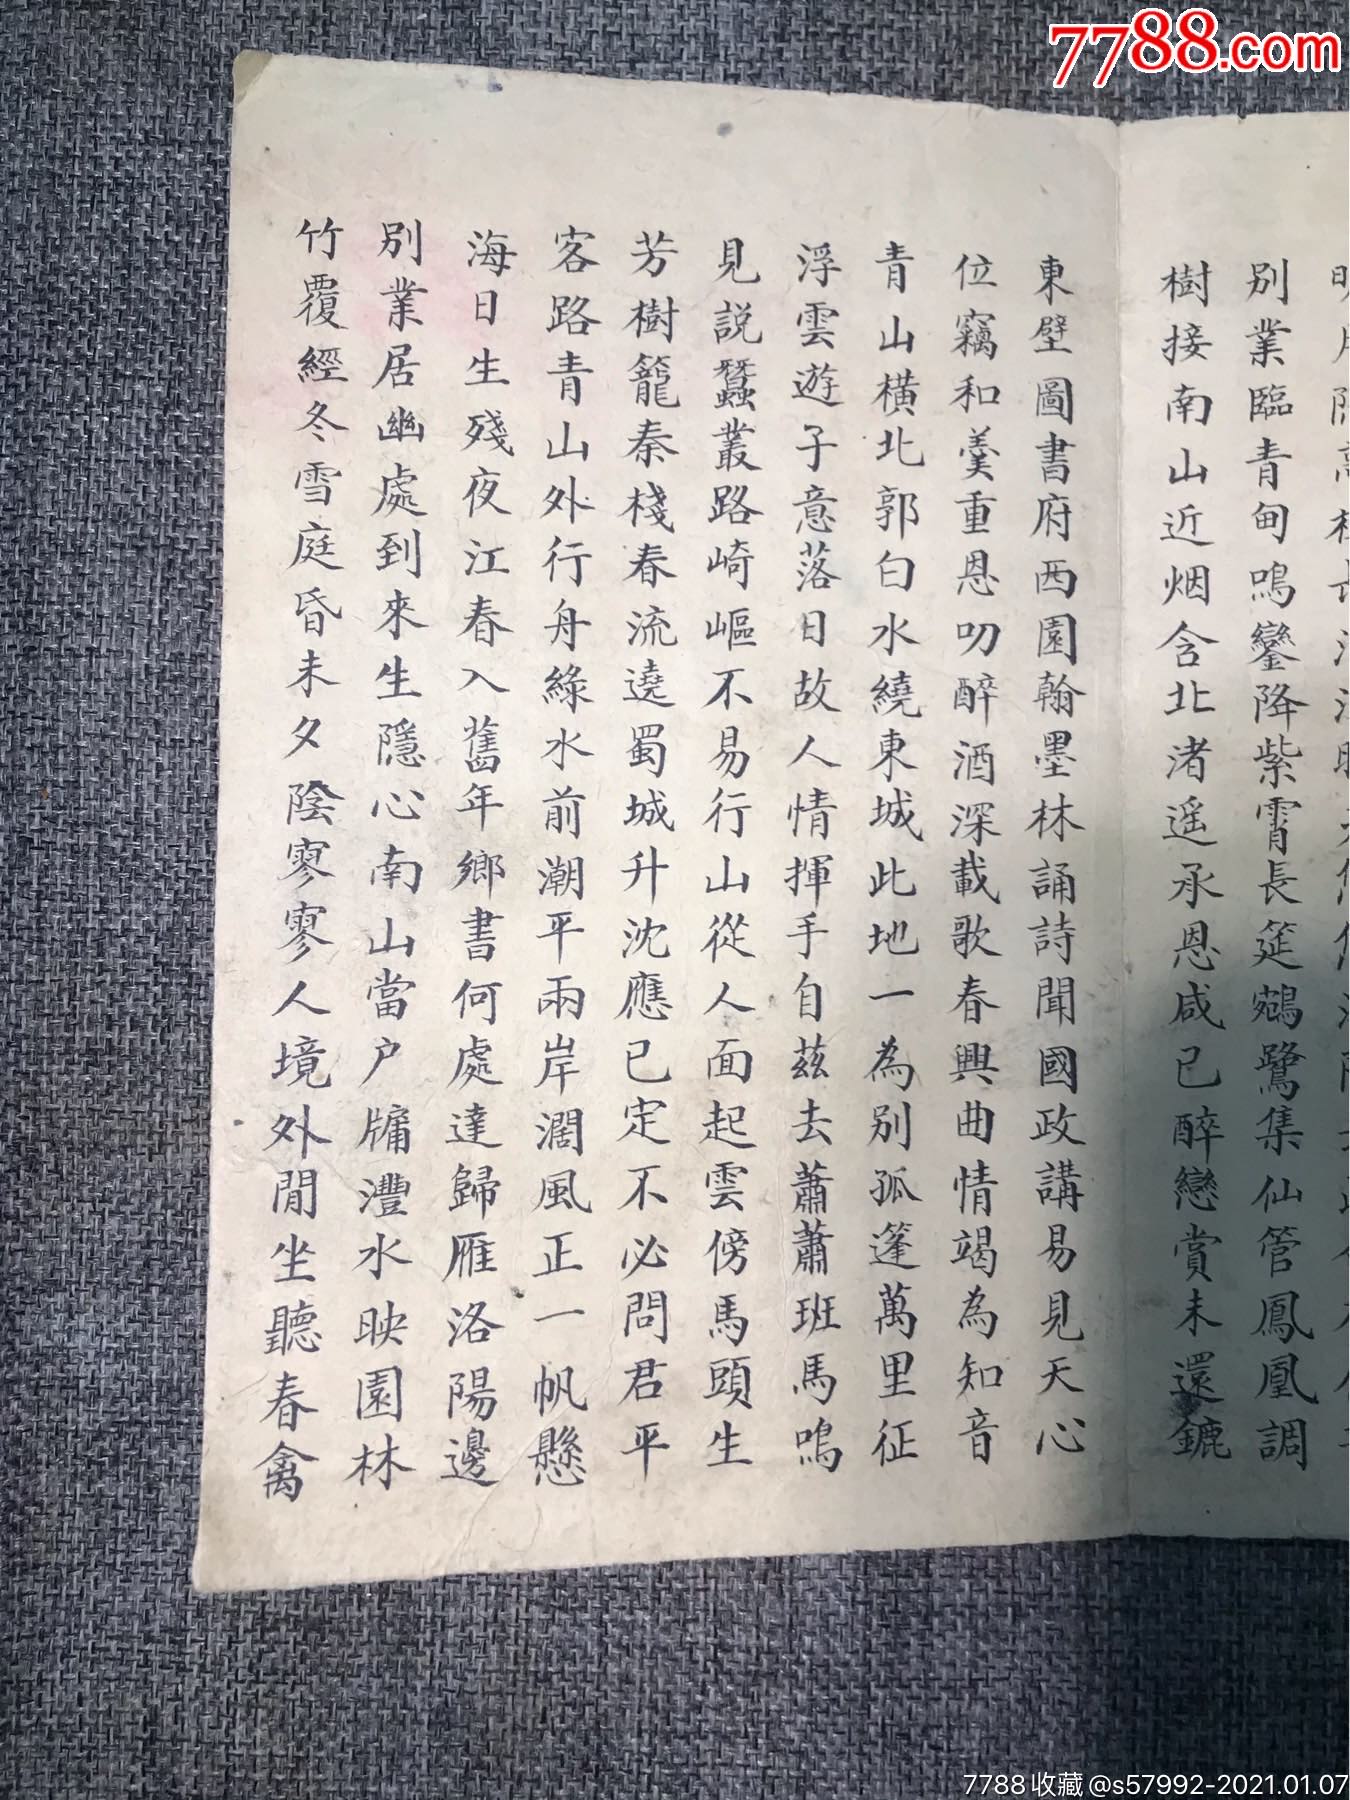 7788.com
別業臨青甸鳴鑾降紫霄長筵鵷鷺集仙管鳳凰調
樹接南山近烟含北渚遥承恩咸已醉戀賞未還鑣
東壁圖書府西園翰墨林誦詩聞國政講易見天心
位竊和羹重恩叨醉酒深載歌春興曲情竭為知音
青山橫北郭白水繞東城此地一為別孤篷萬里征
浮雲遊子意落日故人情揮手自茲去蕭蕭班馬鳴
見説蠶叢路崎嶇不易行山從人面起雲傍馬頭生
芳樹籠秦棧春流遶蜀城升沈應已定不必問君平
客路青山外行舟綠水前潮平兩岸濶風正一帆懸
海日生殘夜江春入舊年鄉書何處達歸雁洛陽邊
別業居幽處到來生隱心南山當户牖灃水映園林
竹覆經冬雪庭昏未夕陰寥寥人境外閒坐聽春禽
7788收藏@s57992-2021.01.07